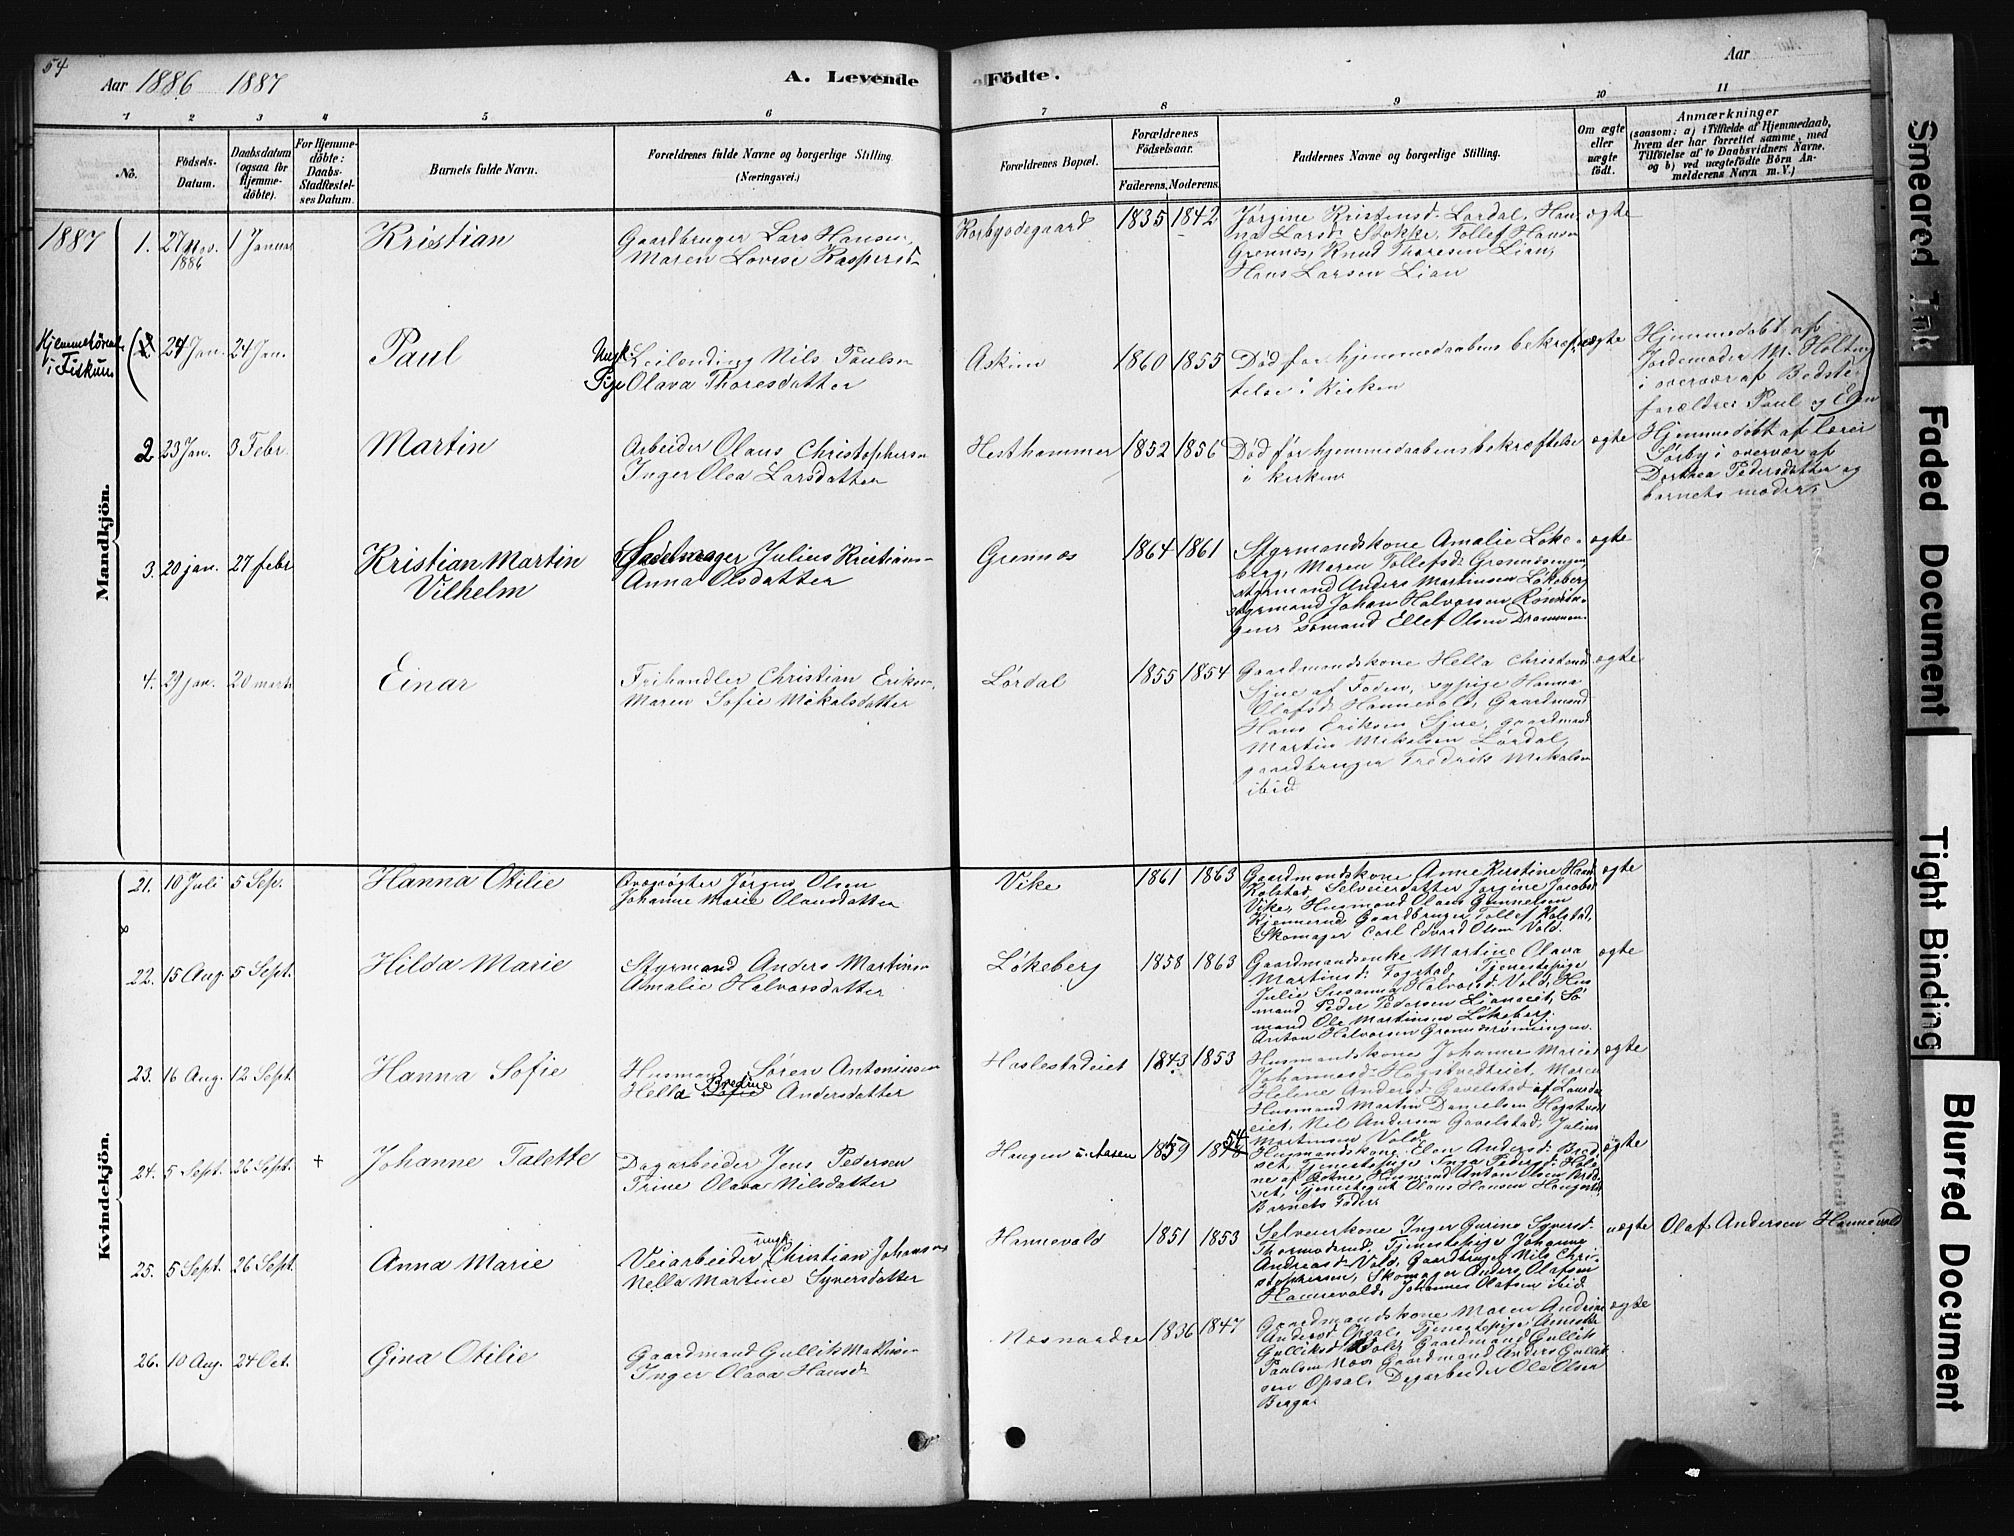 54
Aar 1886 1887
A. Levende Födte.
Aar
1 2 3 4 5 6 7 8 9 10 11
No.
Födsels-Datum.
Daabsdatum (ogsaa for Hjemmedöbte).
For Hjemmedöbte: Daabs-Stadfestelses Datum.
Barnets fulde Navn.
Forældrenes fulde Navne og borgerlige Stilling. (Næringsvei.)
Forældrenes Bopæl.
Forældrenes Födselsaar.
Faderens. Moderens.
Faddernes Navne og borgerlige Stilling.
Om ægte eller uægte födt.
Anmærkninger
(saasom: a) i Tilfælde af Hjemmedaab,
hvem der har forrettet samme, med
Tilföielse af to Daabsvidners Navne,
og b) ved uægtefödte Börn Anmelderens Navn m. V.)
Mandkjön.
1887
1. 27 Nov. 1886 1 Januar Kristian
Gaardbruger Lars Hansen,
Maren Lovise Kaspersd.
Korbyødegaard 1835 1842
Jørgine Kristensd. Lordal, Han-
na Larsd. Stokke, Tollef Hansen
Grennes, Knud Thoresen Lian,
Hans Larsen Lian
ægte
Hjemmehörende i Fiskum
(2 24 Jan. 24 Jan. Paul
Ungk. Leilending Nils Paulsen
Pige Olava Thoresdatter
Askim 1860 1855
Død før hjemmedaabens bekræf-
telse i Kirken
uægte
Hjemmedøbt af
Jordemoder M. Holtung
i overvær af Bedste-
forældre Paul og Elen
2 23 Jan. 3 Febr. Martin
Arbeider Olaus Christophersen
Inger Olea Larsdatter
Hesthammer 1852 1856
Død før hjemmedaabens bekræftelse
i kirken
ægte
Hjemmedøbt af lærer
Sørby i overvær af
Dorthea Pedersdatter og
barnets moder.
3. 20 jan. 27 febr Kristian Martin
Vilhelm
Sadelmager Julius Kristians-
Anna Olsdatter
Grennes 1864 1861
Styrmandskone Amalie Løke-
berg, Maren Tollefsd. Grønnesengen,
styrmand Anders Martinsen Løkeberg
styrmand Johan Halvorsen Rønnin-
gen, sømand Ellef Olsen Drammen.
ægte
4. 29 jan. 20 marts Einar
Frihandler Christian Eriksen,
Maren Sofie Mikalsdatter
Lørdal 1855 1854
Gaardmandskone Hella Christensd.
Sjue af Foden, sypige Hanna
Olafsd. Hannevold, Gaardmand
Hans Eriksen Sjue, gaardmand
Martin Mikalsen Lørdal,
gaardbruger Fredrik Mikalsen
ibid.
ægte
Kvindekjön.
21. 10 Juli 5 Sep. Hanna Otilie
Jørgen Olsen
Johanne Marie Olausdatter
Vike 1861 1863
Gaardmandskone Anne Kirstine Hans
Kolstad, Selveierdatter Jørgine Jacobs
Vike, Husmand Olaus Gunnelsen
Kjennerud, Gaardbruger Tollef Kolstad,
Skomager Carl Edvard Olsen Vold.
ægte
22. 15 Aug. 5 Sept. Hilda Marie
Styrmand Anders Martinsen
Amalie Halvorsdatter
Løkeberg 1858 1863
Gaardmandsenke Martine Olava
Martinsd. Fogstad, Tjenestepige
Julie Susanna Halvorsd. Vold, Hus-
mand Peder Pedersen Lianeiet, Sø-
mand Ole Martinsen Løkeberg,
Anton Halvorsen Grønnesrønningen.
ægte
23. 16 Aug. 12 Sept. Hanna Sofie
Husmand Søren Antoniusen
Hella Sofie Bredine Andersdatter
Haslestadeiet 1843 1853
Husmandskone Johanne Marie
Johannesd. Hogstvedteiet, Maren
Helene Andersd. Gavelstad af Laurdal
Husmand Martin Danielsen Hogstved-
eiet, Nil Andersen Gavelstad, Julius
Martinsen Vold.
ægte
24. 5 Sept. 26 Sept. + Johanne Talette
Dagarbeider Jens Pedersen
Trine Olava Nilsdatter
Haugen u. Aasen 1859 1854
Husmandskone Elen Andersd. Bred-
set, Tjenestepige Inga Pedersd. Hol-
ne af Botne, Husmand Anton Olsen Bred-
set, Tjenestegut Olaus Hansen Haugestad,
Barnets Fader
ægte
25. 5 Sept. 26 Sept. Anna Marie
Veiarbeider ungk. Christian Johansen
Nella Martine Syversdatter
Hannevold 1851 1853
Selveierkone Inger Gurine Syversd.
Thormodsrud, Tjenestepige Johanne
Andreasd. Vold, Gaardbruger Nils Chri-
stophersen, Skomager Anders Olafsen
Hannevold, Johannes Olafsen ibid.
uægte
Olaf Andersen Hannevold
26. 10 Aug. 24 Oct. Gina Otilie
Gaardmand Gullik Mathisen
Inger Olava Hansd.
Næs nordre 1836 1847
Gaardmandskone Maren Andrine
Andersd. Opsal, Tjenestepige Annette
Gulliksd. Gaardmand Gullik
Paulsen Næs, Gaardmand Anders Gullik-
sen Opsal, Dagarbeider Ole Olsen
Berga.
ægte
Smeared Ink
Faded Document
Tight Binding
Blurred Document